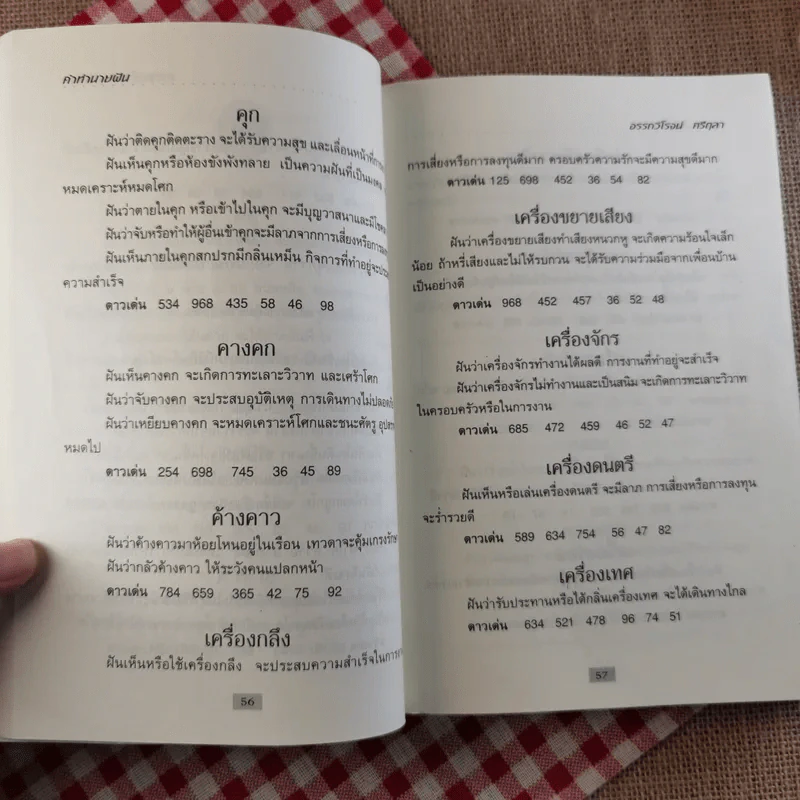 คำทำนายฝัน
คุก
ฝันว่าติดคุกติดตะราง จะได้รับความสุข และเลื่อนหน้าที่
ฝันเห็นคุกหรือห้องขังพังทลาย เป็นความฝันที่เป็นมงคล
หมดเคราะห์หมดโศก
ฝันว่าตายในคุก หรือเข้าไปในคุก จะมีบุญวาสนาและมี
ฝันว่าจับหรือทำให้ผู้อื่นเข้าคุกจะมีลาภจากการเสี่ยงหรือการ
ฝันเห็นภายในคุกสกปรกมีกลิ่นเหม็น กิจการที่ทำอยู่จะ
ความสำเร็จ
ดาวเด่น 534 968 435 58 46 98
คางคก
ฝันเห็นคางคก จะเกิดการทะเลาะวิวาท และเศร้าโศก
ฝันว่าจับคางคก จะประสบอุบัติเหตุ การเดินทางไม่ปลอดภัย
ฝันว่าเหยียบคางคก จะหมดเคราะห์โศกและชนะศัตรู
หมดไป
ดาวเด่น 254 698 745 36 45 89
ค้างคาว
ฝันว่าค้างคาวมาห้อยโหนอยู่ในเรือน เทวดาจะคุ้มเกรงรักษา
ฝันว่ากลัวค้างคาว ให้ระวังคนแปลกหน้า
ดาวเด่น 784 659 365 42 75 92
เครื่องกลึง
ฝันเห็นหรือใช้เครื่องกลึง จะประสบความสำเร็จในการ
56
อรรถวิโรจน์ ศรีตุลา
การเสี่ยงหรือการลงทุนดีมาก ครอบครัวความรักจะมีความสุขดีมาก
ดาวเด่น 125 698 452 36 54 82
เครื่องขยายเสียง
ฝันว่าเครื่องขยายเสียงทำเสียงหนวกหู จะเกิดความร้อนใจเล็ก
น้อย ถ้าหรี่เสียงและไม่ให้รบกวน จะได้รับความร่วมมือจากเพื่อนบ้าน
เป็นอย่างดี
ดาวเด่น 968 452 457 36 52 48
เครื่องจักร
ฝันว่าเครื่องจักรทำงานได้ผลดี การงานที่ทำอยู่จะสำเร็จ
ฝันว่าเครื่องจักรไม่ทำงานและเป็นสนิม จะเกิดการทะเลาะวิวาท
ในครอบครัวหรือในการงาน
ดาวเด่น 685 472 459 46 52 47
เครื่องดนตรี
ฝันเห็นหรือเล่นเครื่องดนตรี จะมีลาภ การเสี่ยงหรือการลงทุน
จะร่ำรวยดี
ดาวเด่น 589 634 754 56 47 82
เครื่องเทศ
ฝันว่ารับประทานหรือได้กลิ่นเครื่องเทศ จะได้เดินทางไกล
ดาวเด่น 634 521 478 96 74 51
57